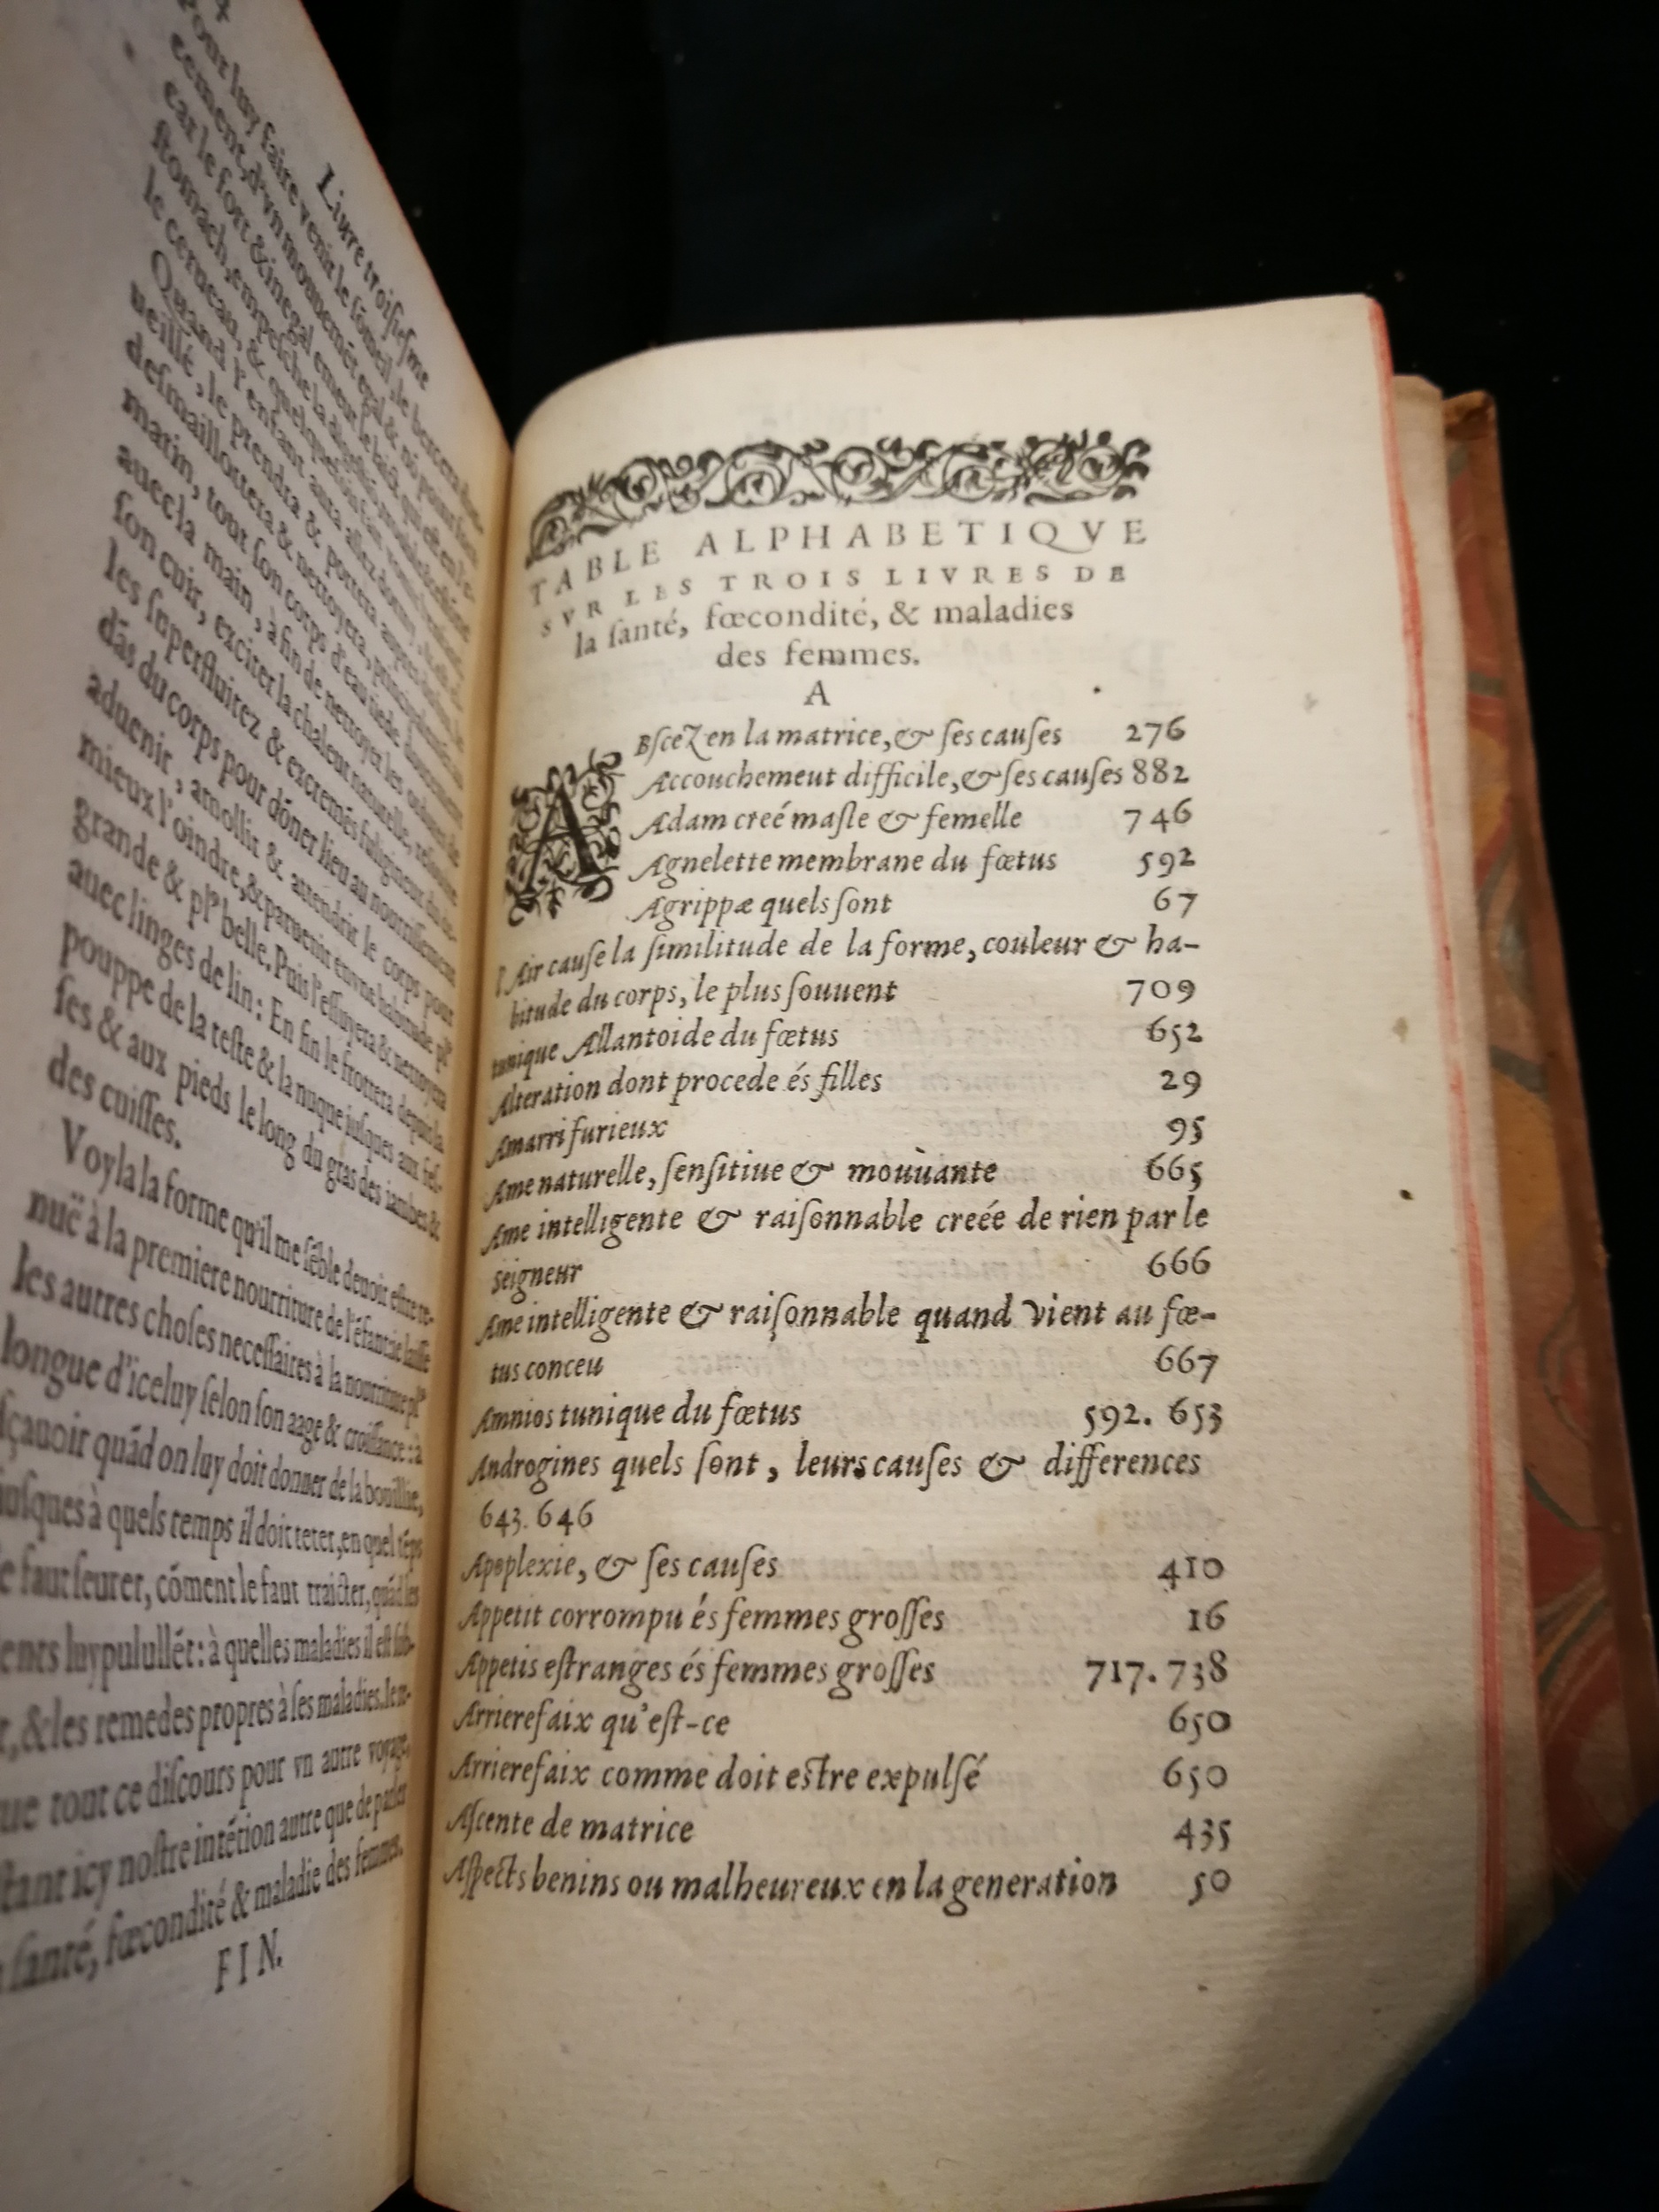 Liure troisiesme
pour luy faire venir le sōmeil, le bercera
cement, d'vn mouuemēt egal &
car le fort & inegal
stomach, empesche la
le cerueau, &
Quand l'enfant aura
ueillé, le prendra & portera aupres
desmaillottera & nettoyera,
matin, tout son corps d'eau tiede
auec la main, à fin de nettoyer les
son cuir, exciter la chaleur naturelle,
les superfluitez & excremēs fuligineux du
dās du corps pour dōner lieu au nourrissement
aduenir, amollir & attendrir le corps pour
mieux l'oindre, & paruenir en vne habitude plꝰ
grande & plꝰ belle. Puis l'essuyera & nettoyera
auec linges de lin: En fin le frottera depuis la
pouppe de la teste & la nuque iusques aux fes-
ses & aux pieds le long du gras des iambes &
des cuisses.
Voyla la forme qu'il me sēble deuoir estre te-
nuë à la premiere nourriture de l'ēfant: ie laisse
les autres choses necessaires à la nourriture plꝰ
longue d'iceluy selon son aage & croissance: à
sçauoir quād on luy doit donner de la bouillie,
iusques à quels temps il doit teter, en quel tēps
le faut seurer, cōment le faut traicter, quād les
ents luy pulullēt: à quelles maladies il est sub-
, & les remedes propres à ses maladies.
ue tout ce discours pour vn autre voyage,
stant icy nostre intētion autre que de parler
santé, fœcondité & maladie des femmes.
FIN.
TABLE ALPHABETIQVE
SVR LES TROIS LIVRES DE
la ſanté, fœcondité, & maladies
des femmes.
A
ABſcez en la matrice, & ſes cauſes 276
Accouchemeut difficile, & ſes cauſes 882
Adam creé maſle & femelle 746
Agnelette membrane du fœtus 592
Agrippæ quels ſont 67
l'Air cauſe la ſimilitude de la forme, couleur & ha-
bitude du corps, le plus ſouuent 709
tunique Allantoide du fœtus 652
Alteration dont procede és filles 29
Amarri furieux 95
Ame naturelle, ſenſitiue & mouùante 665
Ame intelligente & raiſonnable creée de rien par le
Seigneur 666
Ame intelligente & raiſonnable quand vient au fœ-
tus conceu 667
Amnios tunique du fœtus 592. 653
Androgines quels ſont, leurs cauſes & differences
643. 646
Apoplexie, & ſes cauſes 410
Appetit corrompu és femmes groſſes 16
Appetis eſtranges és femmes groſſes 717. 738
Arrierefaix qu'eſt-ce 650
Arrierefaix comme doit eſtre expulſé 650
Aſcente de matrice 435
Aſpects benins ou malheureux en la generation 50